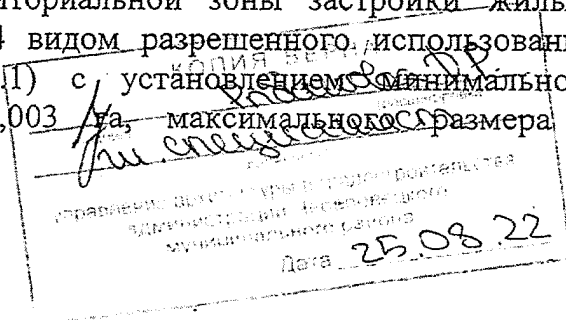 ториальной зоны застройки жилы
4 видом разрешенного использовани
.1) с установлением минимально
КОПИЯ ВЕРНА
,003 га, максимального размера
гл. специалист
управление архитектуры и градостроительства
администрации
муниципального района
Дата 25.08.22